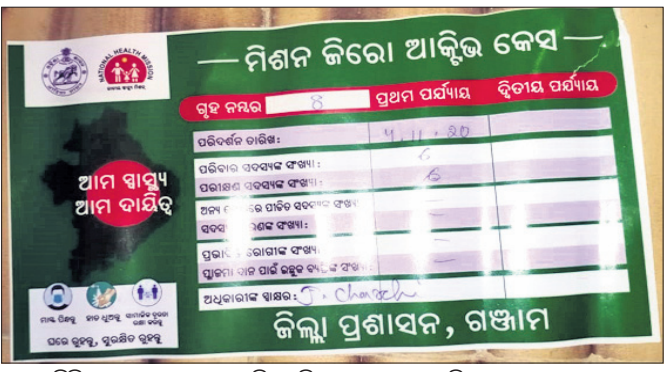 NATIONAL HEALTH MISSION
ମିଶନ ଜିରୋ ଆକ୍ଟିଭ କେସ
ଗୃହ ନମ୍ବର 8 ପ୍ରଥମ ପର୍ଯ୍ୟାୟ ଦ୍ୱିତୀୟ ପର୍ଯ୍ୟାୟ
ପରିଦର୍ଶନ ତାରିଖ: 4.11.20
ପରିବାର ସଦସ୍ୟଙ୍କ ସଂଖ୍ୟା: 6
ପରୀକ୍ଷଣ ସଦସ୍ୟଙ୍କ ସଂଖ୍ୟା: 6
ଅନ୍ୟ ପୀଡିତ ସଦସ୍ୟଙ୍କ ସଂଖ୍ୟା —
ସଂଖ୍ୟା:
ରୋଗୀଙ୍କ ସଂଖ୍ୟା —
ପ୍ଲାଜମା ଦାନ ପାଇଁ ଇଚ୍ଛୁକ ସଂଖ୍ୟା:
ଅଧିକାରୀଙ୍କ ସ୍ୱାକ୍ଷର:
ଆମ ସ୍ୱାସ୍ଥ୍ୟ
ଆମ ଦାୟିତ୍ୱ
ମାସ୍କ ପିନ୍ଧନ୍ତୁ ହାତ ଧୁଅନ୍ତୁ ସାମାଜିକ ଦୂରତା ରକ୍ଷା କରନ୍ତୁ
ଘରେ ରୁହନ୍ତୁ, ସୁରକ୍ଷିତ ରୁହନ୍ତୁ
ଜିଲ୍ଲା ପ୍ରଶାସନ, ଗଞ୍ଜାମ